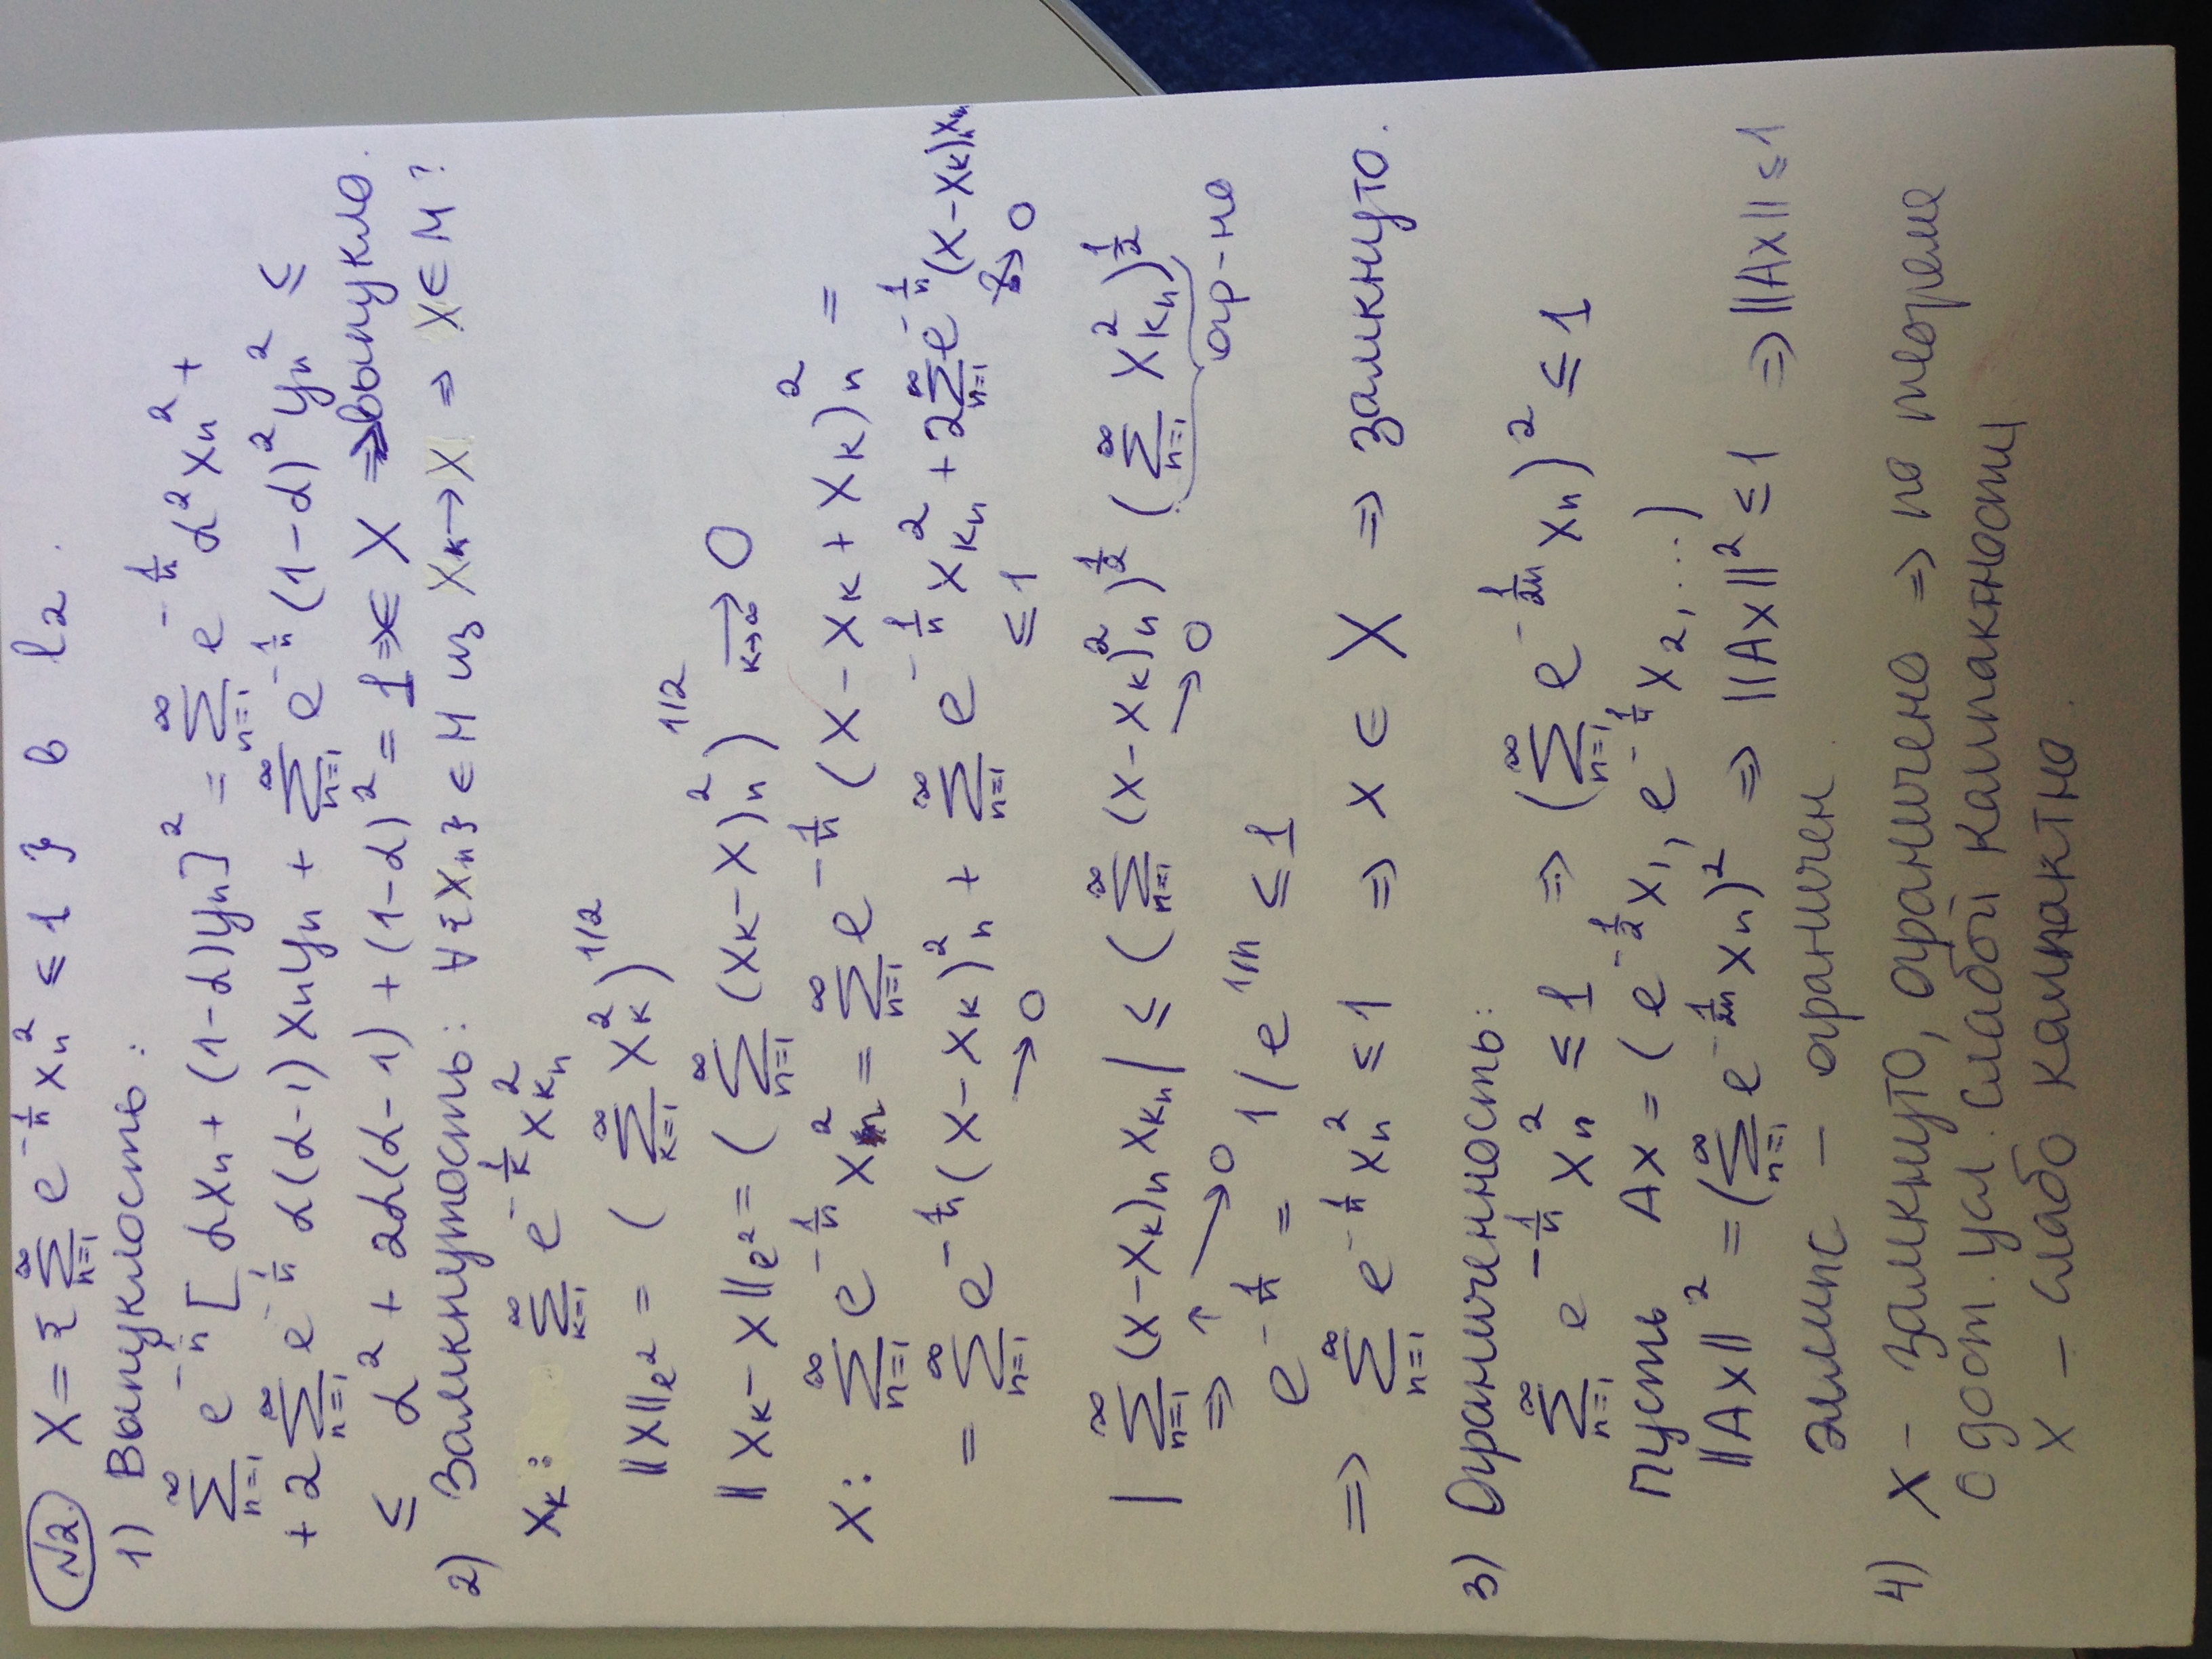 №2. X = { ∑_{n=1}^∞ e^{-1/n} x_n^2 ≤ 1 } в l_2.
1) Выпуклость:
∑_{n=1}^∞ e^{-1/n} [αx_n + (1-α)y_n]^2 = ∑_{n=1}^∞ e^{-1/n} α^2 x_n^2 +
+ 2∑_{n=1}^∞ e^{-1/n} α(α-1) x_n y_n + ∑_{n=1}^∞ e^{-1/n} (1-α)^2 y_n^2 ≤
≤ α^2 + 2α(α-1) + (1-α)^2 = 1 ⇒ x ∈ X ⇒ выпукло.
2) Замкнутость: ∀{x_n} ∈ M из x_k → x ⇒ x ∈ M?
x_k: ∑_{k=1}^∞ e^{-1/k} x_{k_n}^2
||x||_{e^2} = ( ∑_{k=1}^∞ x_k^2 )^{1/2}
||x_k - x||_{e^2} = ( ∑_{n=1}^∞ (x_k - x)_n^2 )^{1/2} →_{k→∞} 0
x: ∑_{n=1}^∞ e^{-1/n} x_n^2 = ∑_{n=1}^∞ e^{-1/n} (x - x_k + x_k)_n^2 =
= ∑_{n=1}^∞ e^{-1/n} (x - x_k)_n^2 + ∑_{n=1}^∞ e^{-1/n} x_{k_n}^2 + 2∑_{n=1}^∞ e^{-1/n} (x - x_k)_n x_{k_n}
→ 0 ≤ 1 → 0
| ∑_{n=1}^∞ (x - x_k)_n x_{k_n} | ≤ ( ∑_{n=1}^∞ (x - x_k)_n^2 )^{1/2} ( ∑_{n=1}^∞ x_{k_n}^2 )^{1/2}
⇒ ↑ → 0 → 0 огр-но
e^{-1/n} = 1/e^{1/n} ≤ 1
⇒ ∑_{n=1}^∞ e^{-1/n} x_n^2 ≤ 1 ⇒ x ∈ X ⇒ замкнуто.
3) Ограниченность:
∑_{n=1}^∞ e^{-1/n} x_n^2 ≤ 1 ⇒ ( ∑_{n=1}^∞ e^{-1/2n} x_n )^2 ≤ 1
Пусть Ax = ( e^{-1/2} x_1, e^{-1/4} x_2, ... )
||Ax||^2 = ( ∑_{n=1}^∞ e^{-1/2n} x_n )^2 ⇒ ||Ax||^2 ≤ 1 ⇒ ||Ax|| ≤ 1
эллипс - ограничен.
4) X - замкнуто, ограничено ⇒ по теореме
о дост. усл. слабой компактности
X - слабо компактно.